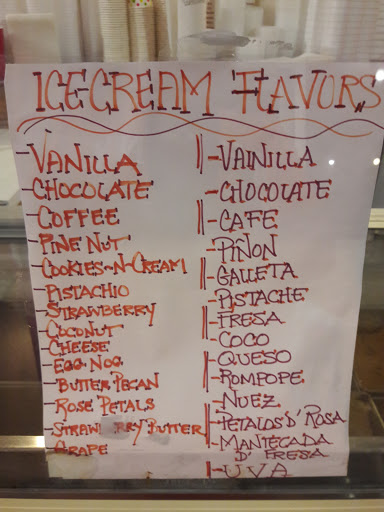 ICE CREAM FLAVORS
-VANILLA
-CHOCOLATE
-COFFEE
-PINE NUT
-COOKIES-N-CREAM
-PISTACHIO
-STRAWBERRY
-COCONUT
-CHEESE
-EGG NOG
-BUTTER PECAN
-ROSE PETALS
-STRAWBERRY BUTTER
-GRAPE
-VAINILLA
-CHOCOLATE
-CAFE
-PIÑON
-GALLETA
-PISTACHE
-FRESA
-COCO
-QUESO
-ROMPOPE
-NUEZ
-PETALOS D' ROSA
-MANTECADA
D' FRESA
-UVA